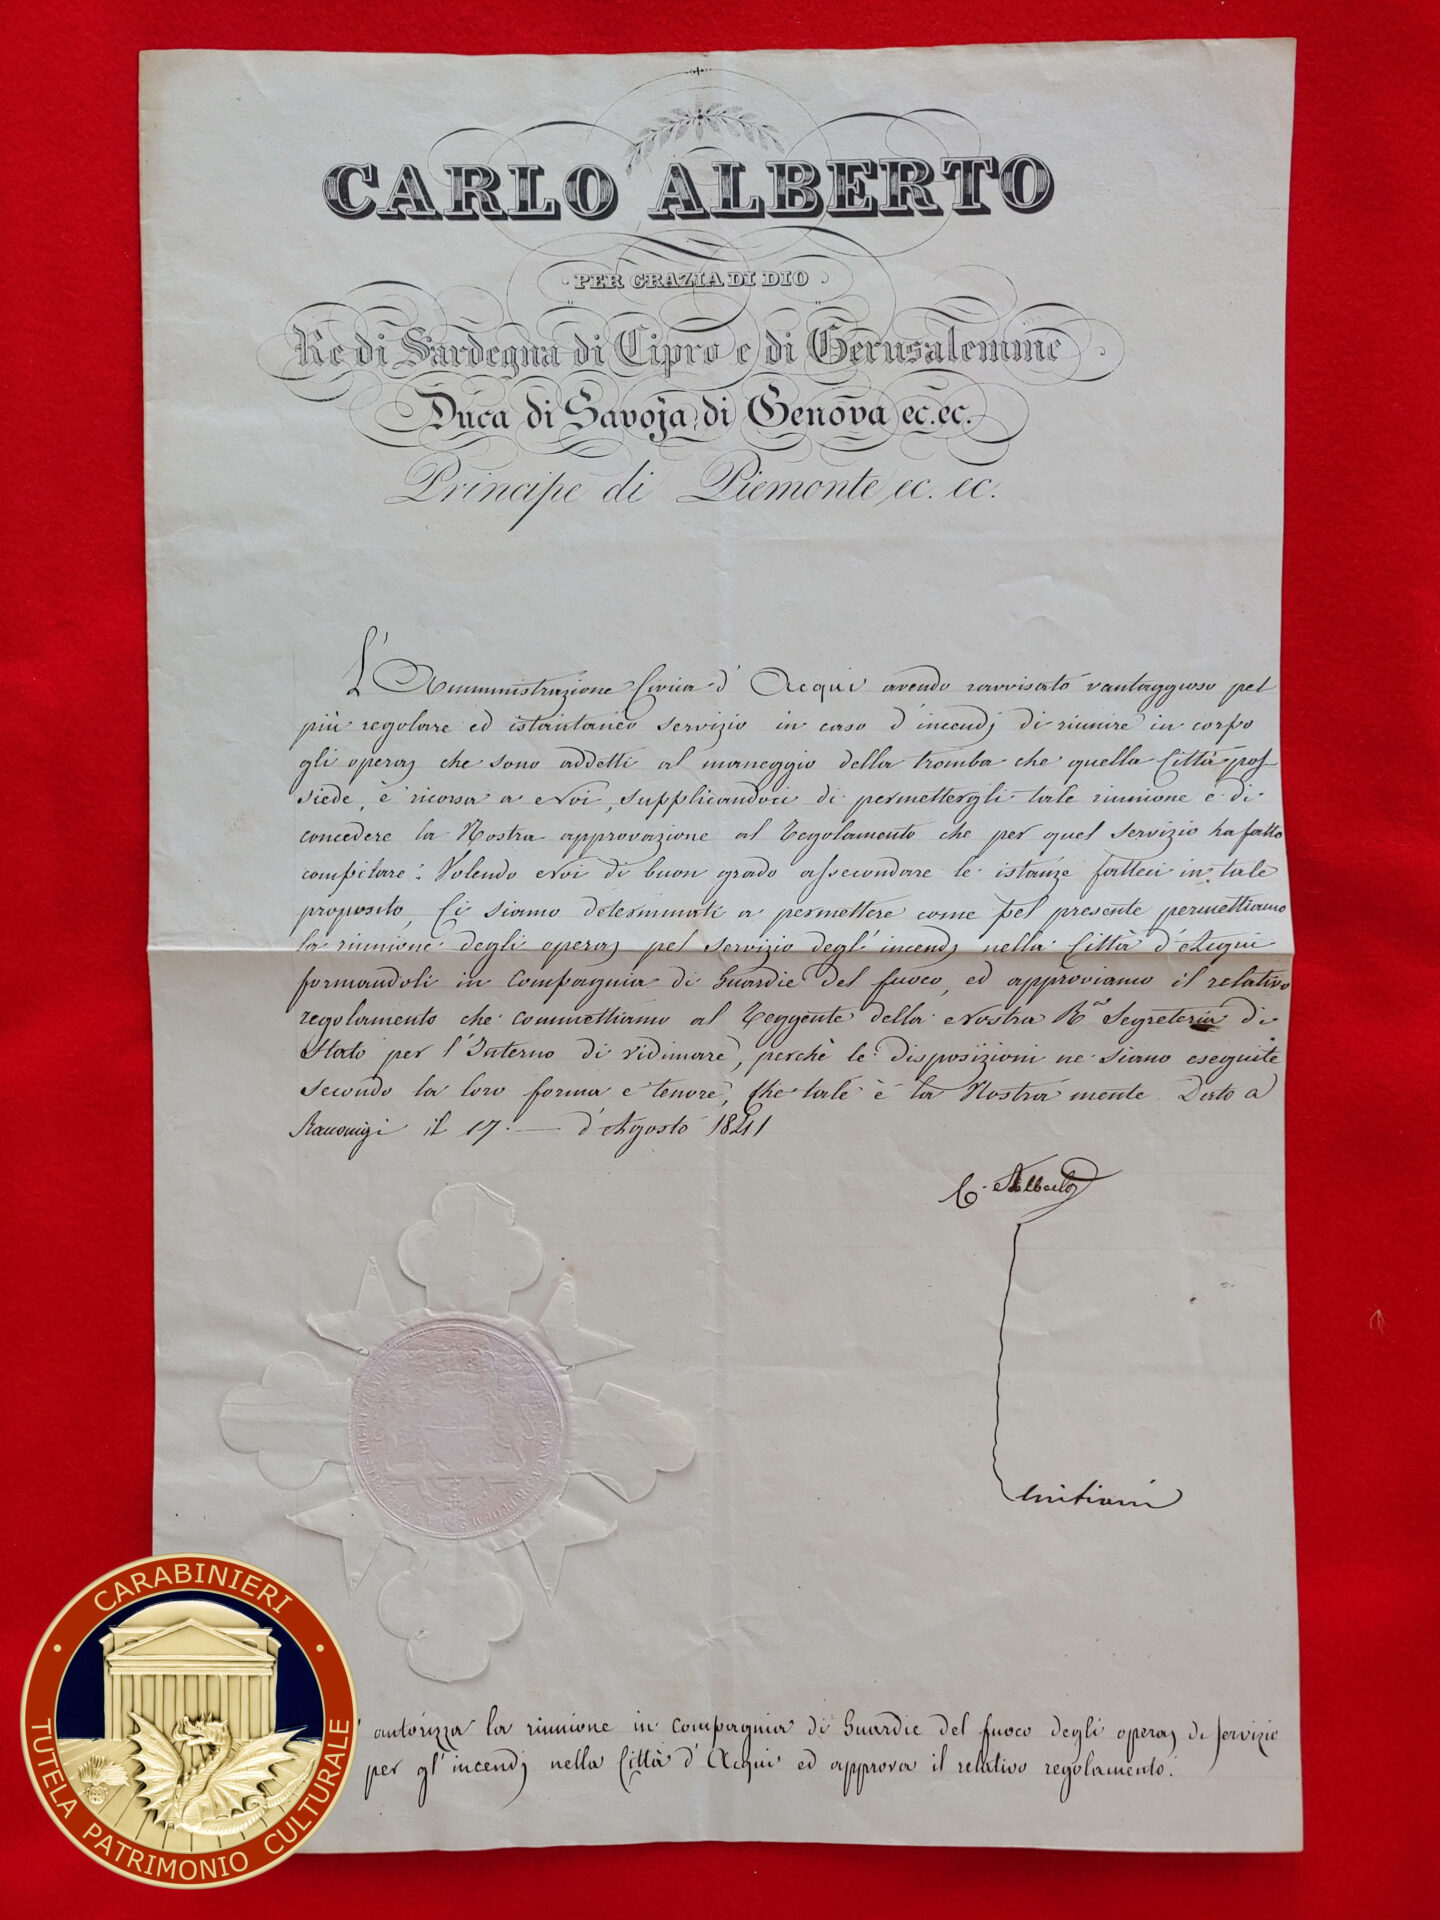 CARLO ALBERTO
PER GRAZIA DI DIO
Re di Sardegna di Cipro e di Gerusalemme
Duca di Savoja, di Genova ec. ec.
Principe di Piemonte, ec. ec.
L'Amministrazione Civica d'Acqui avendo ravvisato vantaggioso pel
più regolare ed istantaneo servizio in caso d'incendj di riunire in corpo
gli operaj che sono addetti al maneggio della tromba che quella Città pos
siede, è ricorsa a Noi, supplicandoci di permettergli tale riunione e di
concedere la Nostra approvazione al Regolamento che per quel servizio ha fatto
compilare: Volendo Noi di buon grado assecondare le istanze fatteci in tale
proposito, Ci siamo determinati a permettere come pel presente permettiamo
la riunione degli operaj pel servizio degl'incendj nella Città d'Acqui
formandoli in Compagnia di Guardie del fuoco, ed approviamo il relativo
regolamento che commettiamo al Reggente della Nostra R.a Segreteria di
Stato per l'Interno di vidimare, perchè le disposizioni ne siano eseguite
secondo la loro forma e tenore, Che tale è la Nostra mente. Dato a
Racconigi il 17. — d'Agosto 1841
C. Alberto
autorizza la riunione in compagnia di Guardie del fuoco degli operaj di servizio
per gl'incendj nella Città d'Acqui ed approva il relativo regolamento.
CARABINIERI
TUTELA PATRIMONIO CULTURALE